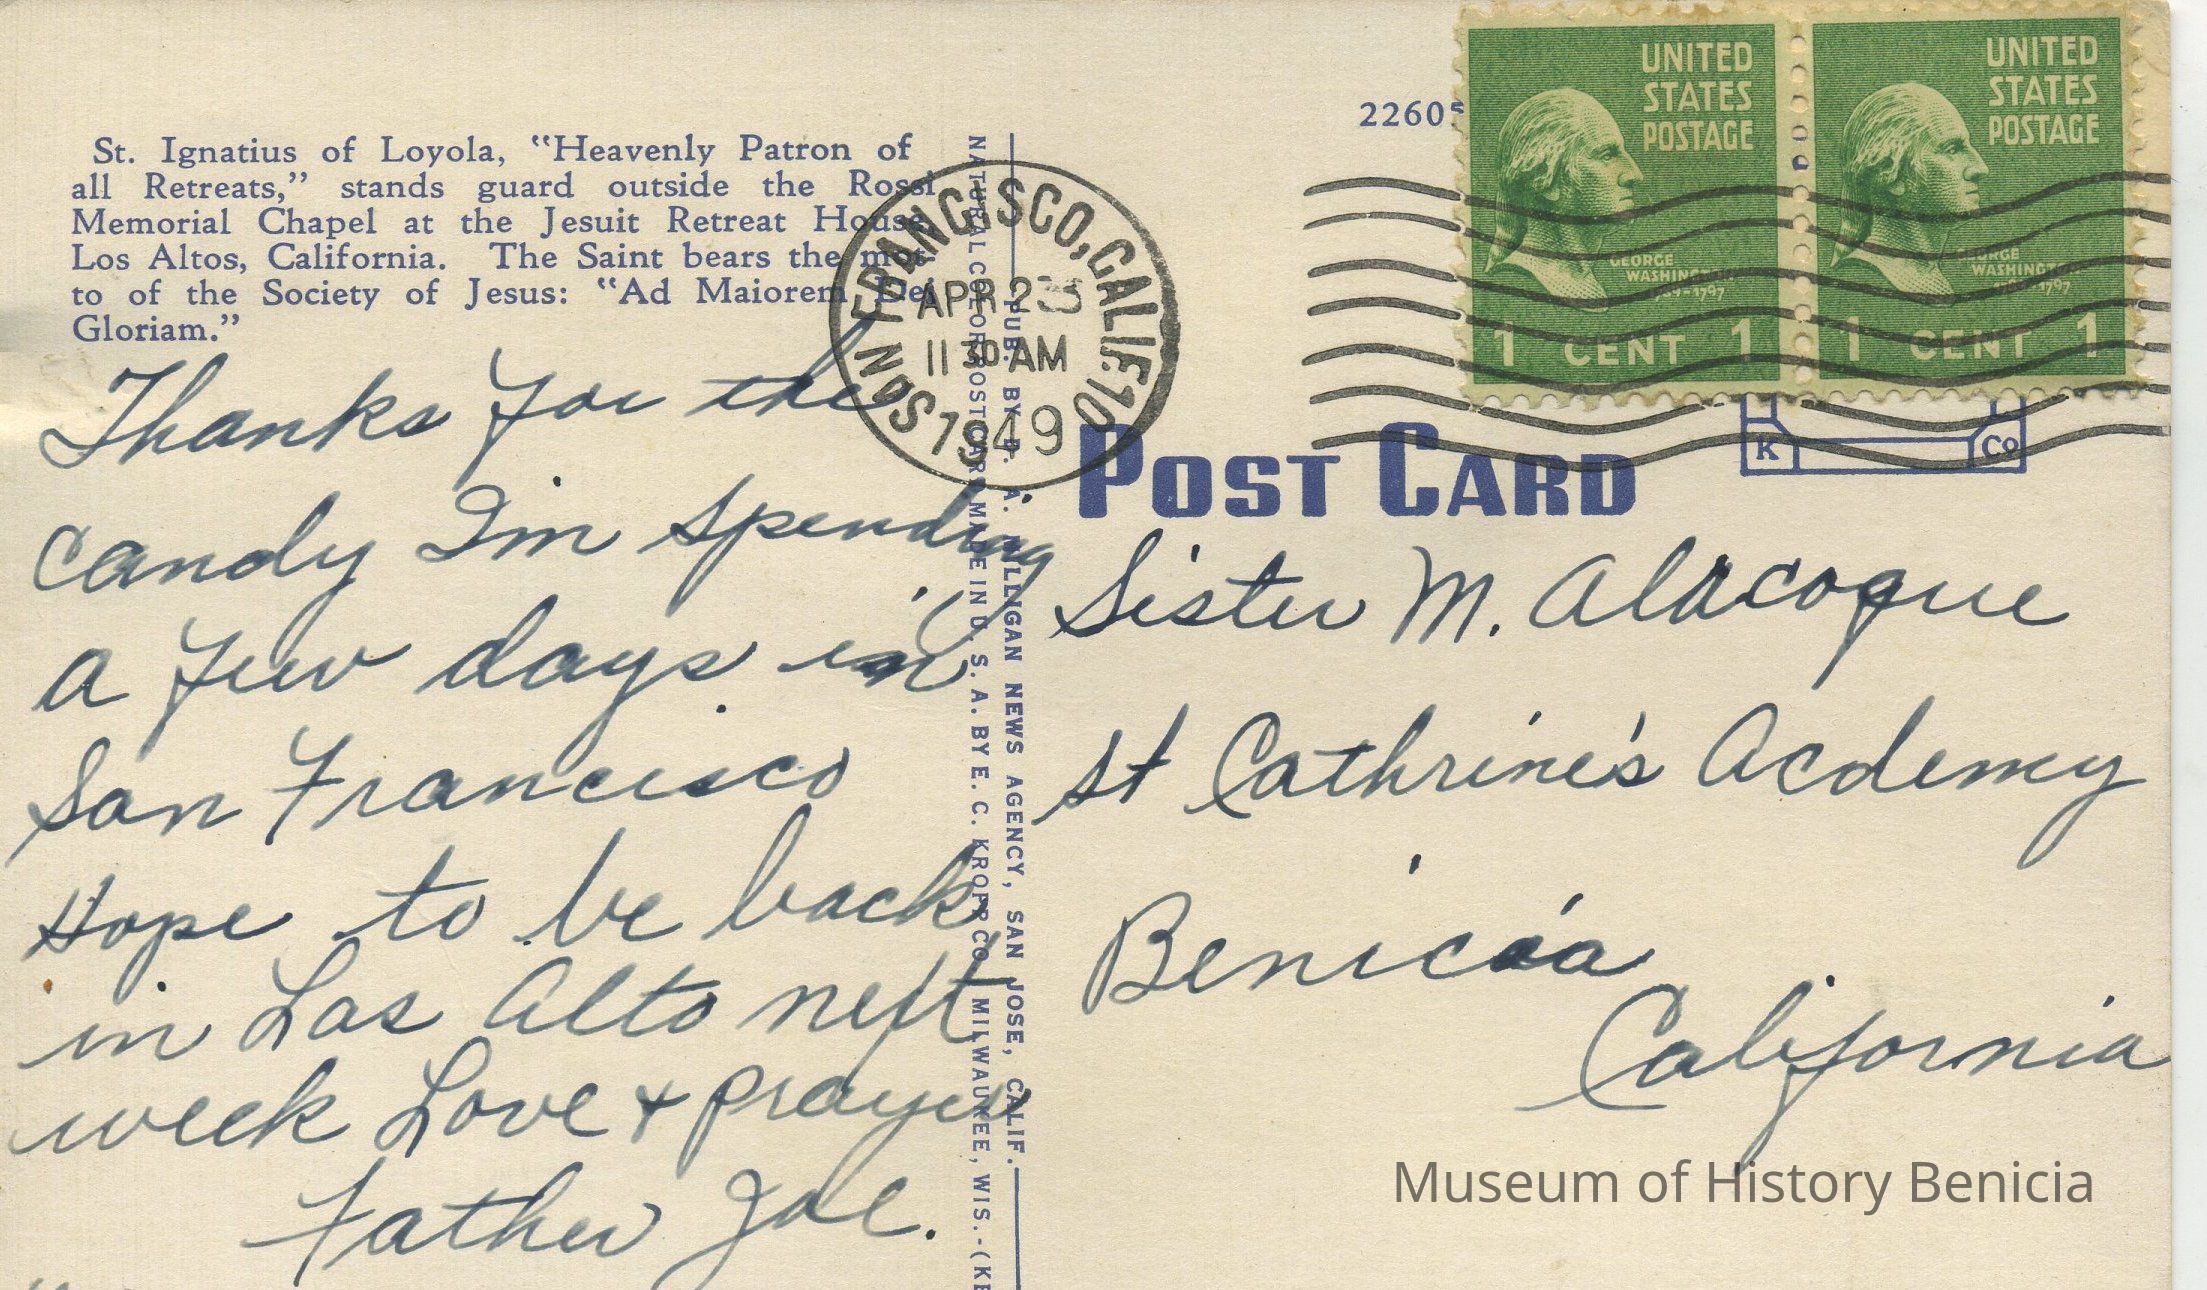 St. Ignatius of Loyola, "Heavenly Patron of
all Retreats," stands guard outside the Rossi
Memorial Chapel at the Jesuit Retreat House
Los Altos, California. The Saint bears the mot-
to of the Society of Jesus: "Ad Maiorem Dei
Gloriam."
Thanks for the
Candy I'm spending
a few days in
San Francisco
Hope to be back
in Las Alto next
week Love + prayers
Father Joe.
SAN FRANCISCO, CALIF. 10
APR 23
11 30 AM
1949
NATURAL COLOR POST CARDS MADE IN U. S. A. BY E. C. KROPP CO., MILWAUKEE, WIS.-(KE
PUB. BY D. A. MILLIGAN NEWS AGENCY, SAN JOSE, CALIF.
22605
UNITED
STATES
POSTAGE
GEORGE
WASHINGTON
1789-1797
1 CENT 1
UNITED
STATES
POSTAGE
GEORGE
WASHINGTON
1789-1797
1 CENT 1
K Co
POST CARD
Sister M. Alacoque
St Cathrine's Acdemy
Benicia
California
Museum of History Benicia